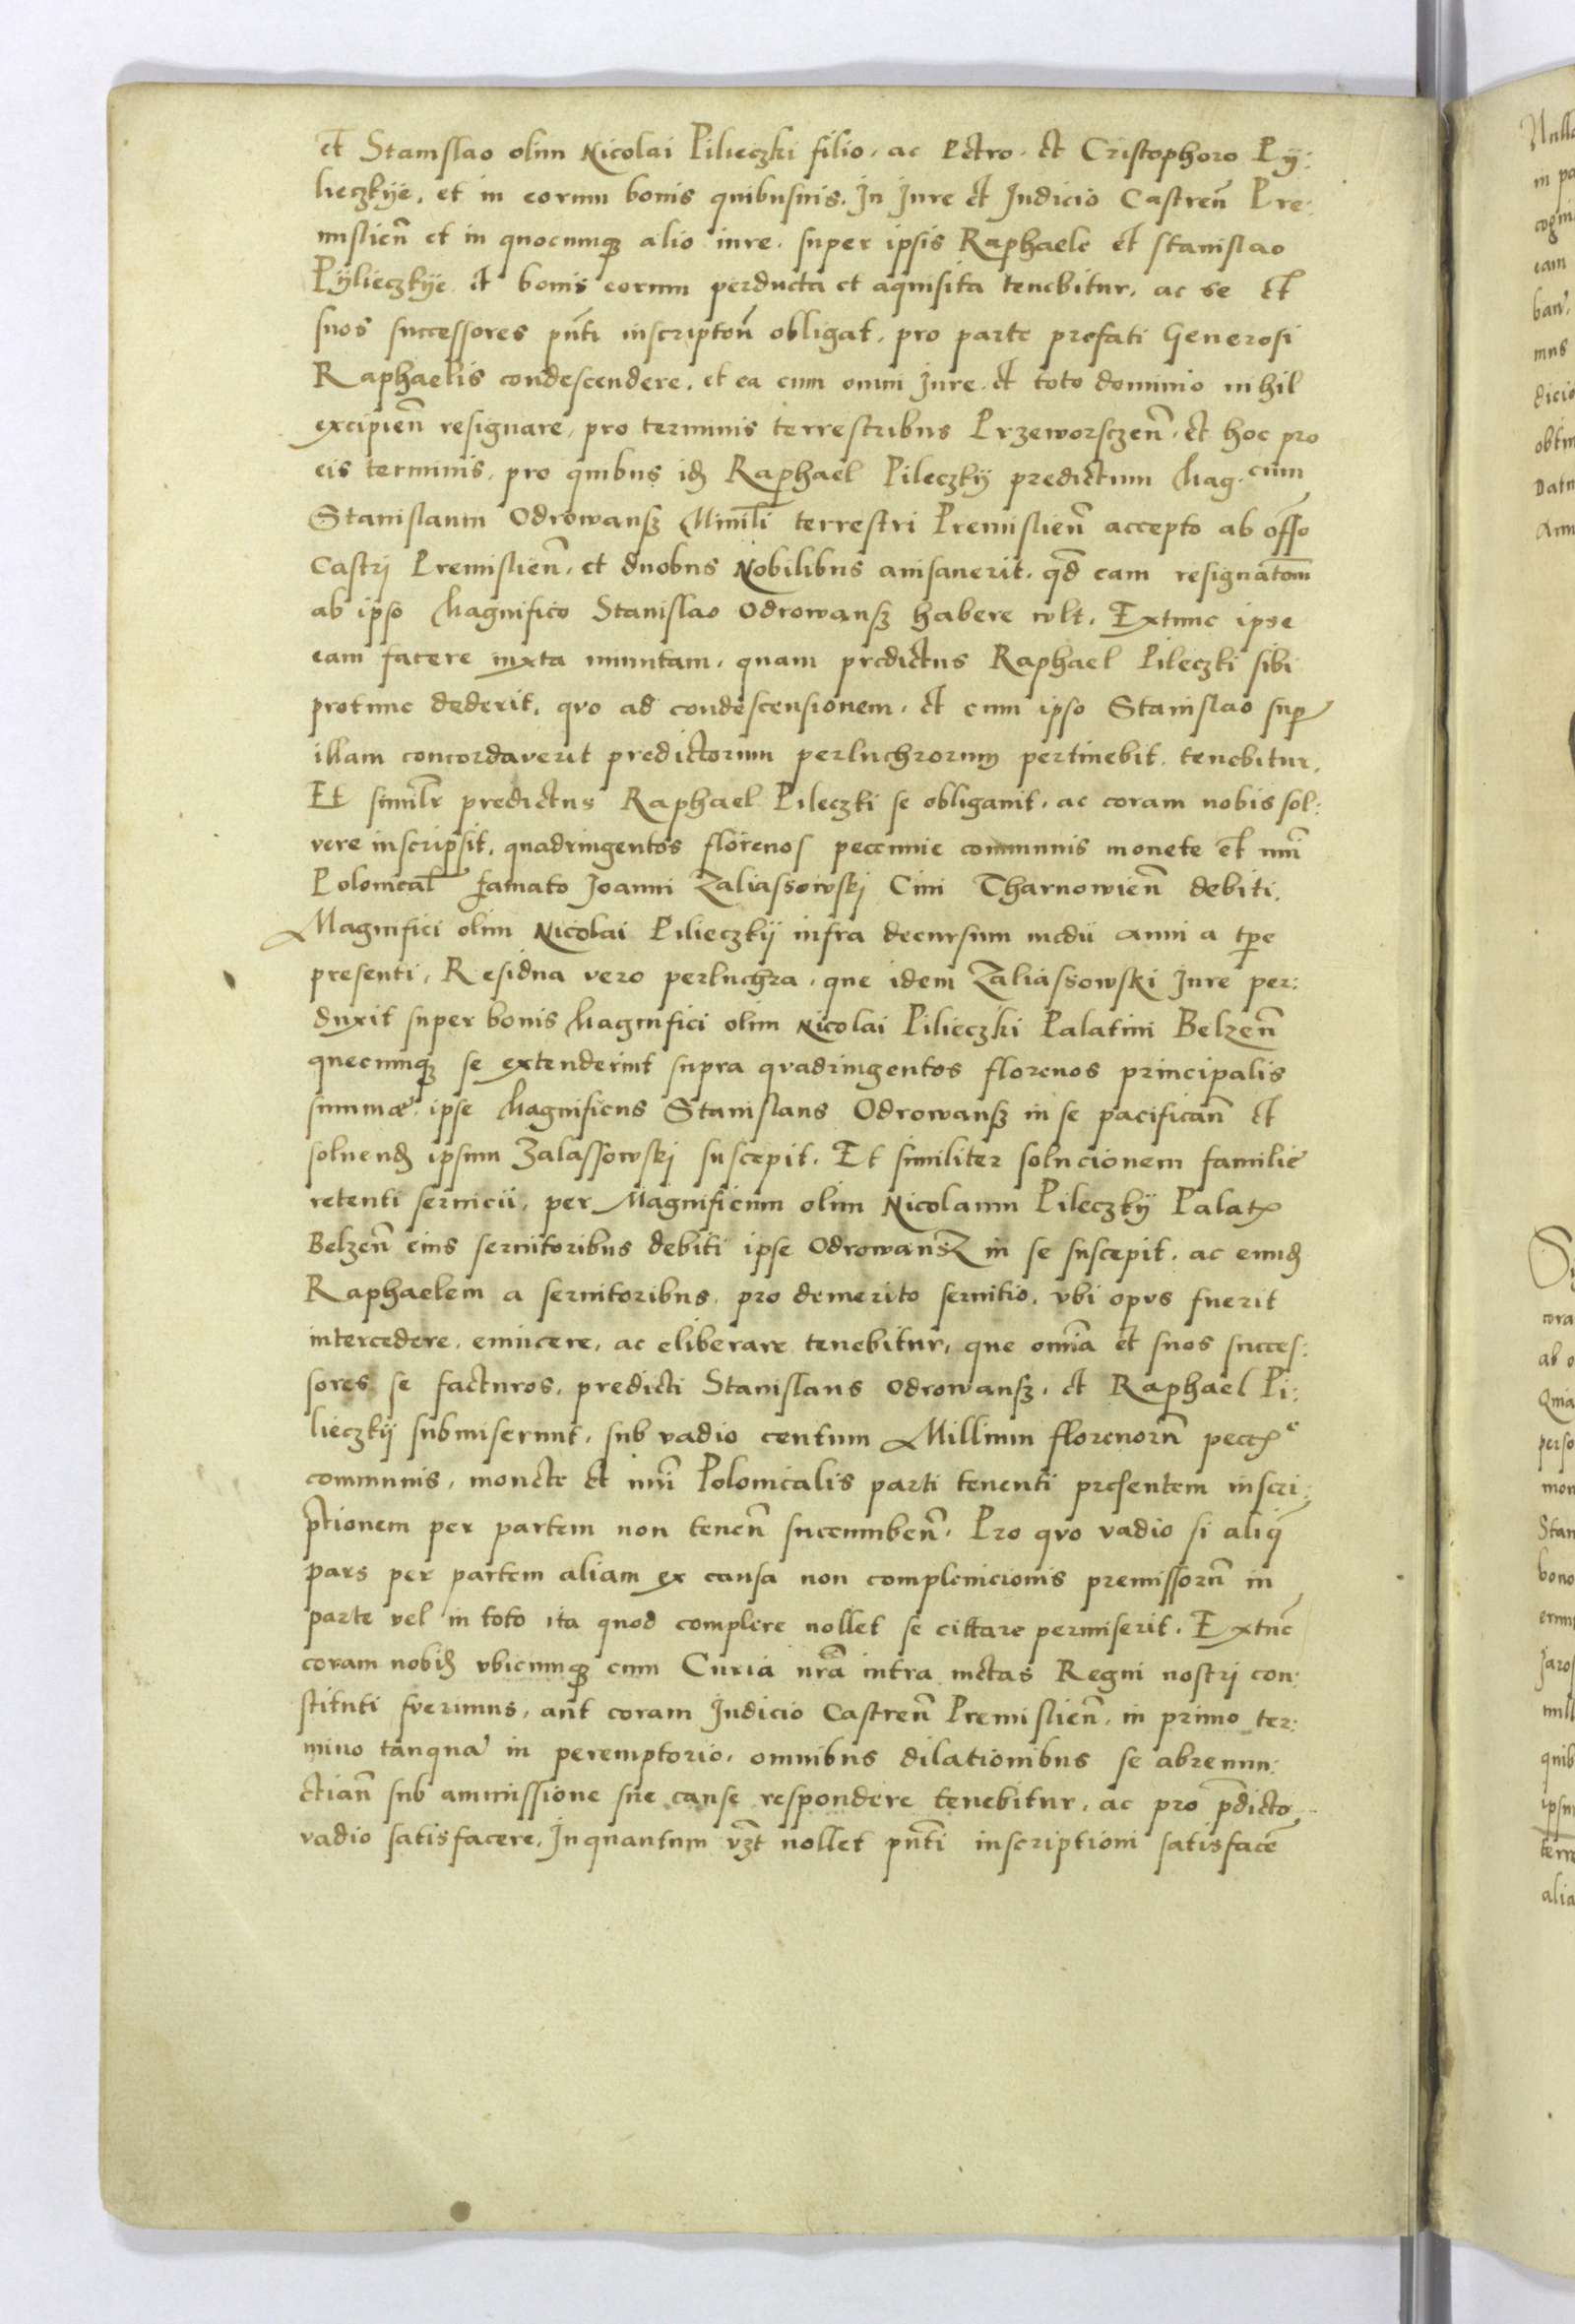 et Stanislao olim Nicolai Pilieczki filio, ac Petro, et Cristophoro Py:
lieczkÿe, et in eorum bonis quibusuis, In Jure et Judicio Castren̄ Pre:
mislien̄ et in quocumqꝫ alio iure, super ipsis Raphaele et Stanislao
Pÿlieczkÿe et bonis eorum perducta et aquisita tenebitur, ac se et
suos successores pn̄ti inscripton̄ obligat, pro parte prefati Generosi
Raphaelis condescendere, et ea cum omni Jure, et toto dominio nihil
excipien̄ resignare, pro terminis terrestribus Przeworsczen̄, et hoc pro
eis terminis, pro quibus idꝫ Raphael Pileczkÿ predictum Mag.cum
Stanislaum Odrowansꝫ Min̄li terrestri Premislien̄ accepto ab off̄o
Castri Premislien̄, et duobus Nobilibus auisauerit, qd̄ eam resignatōm
ab ipso Magnifico Stanislao Odrowansꝫ habere wlt, Extunc ipse
eam facere iuxta minutam, quam predictus Raphael Pileczki sibi
protunc dederit, qvo ad condescensionem, et cum ipso Stanislao sup̱
illam concordaverit predictorum perluchrorum pertinebit, tenebitur,
Et simil̄r predictus Raphael Pileczki se obligauit, ac coram nobis sol:
vere inscripsit, quadringentos florenos peccunie communis monete et nūi
Polonical̄ famato Joanni Zaliassowski Ciui Tharnowien̄ debiti,
Magnifici olim Nicolai Pilieczkÿ infra decursum medii anni a tp̄e
presenti, Residua vero perluchra, que idem Zaliassowski Jure per:
duxit super bonis Magnifici olim Nicolai Pilieczki Palatini Belzen̄
quecumqꝫ se extenderint supra qvadringentos florenos principalis
summæ, ipse Magnificus Stanislaus Odrowansꝫ in se pacifican̄ et
soluendꝫ ipsum Zalassowski suscepit, Et similiter solucionem familie
retenti seruicii, per Magnificum olim Nicolaum Pileczkÿ Palat
Belzen̄ eius seruitoribus debiti ipse OdrowansZ in se suscepit, ac eundꝫ
Raphaelem a seruitoribus, pro demerito seruitio, vbi opvs fuerit
intercedere, euincere, ac eliberare tenebitur, que om̄ia et suos succes:
sores se facturos, predicti Stanislaus Odrowansꝫ, et Raphael Pi:
lieczkÿ submiserunt, sub vadio centum Millium florenorū pecc̄e
communis, monete et nūi Polonicalis parti tenenti presentem inscri:
ptionem per partem non tenen̄ succumben̄, Pro qvo vadio si aliq̄
pars per partem aliam ex causa non complenicionis premissorū in
parte vel in toto ita quod complere nollet se cittare permiserit, Extūc
coram nobiꝫ vbicumqꝫ cum Curia nr̄a intra metas Regni nostri con:
stituti fverimus, aut coram Judicio Castren̄ Premislien̄, in primo ter:
mino tanquā in peremptorio, omnibus dilationibus se abrenun:
ctian̄ sub ammissione sue cause respondere tenebitur, ac pro p̄dicto
vadio satisfacere, Inquantum vꝫt nollet pn̄ti inscriptioni satisfacē